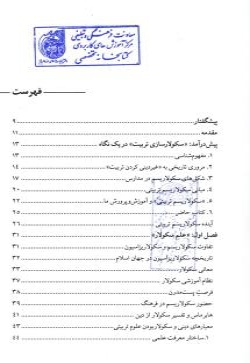 معاونت فرهنگی و تبلیغی
مرکز آموزش های کاربردی
کتابخانه تخصصی
فهرست
پیشگفتار ۹
مقدمه ۱۱
پیش‌درآمد: «سکولارسازی تربیت» در یک نگاه ۱۳
۱. مفهوم‌شناسی ۱۳
۲. مروری تاریخی به «غیردینی کردن تربیت» ۱۴
۳. شکل‌های سکولاریسم در مدارس ۱۷
۴. مبانی سکولاریسم تربیتی
۵. «سکولاریسم تربیتی» و آموزش و پرورش ما
۶. کتاب حاضر
آینده سکولاریسم تربیتی ۲۶
فصل اول: «علم سکولار» ۳۱
تفاوت سکولاریسم و سکولاریزاسیون ۳۱
تاریخچه سکولاریسم و سکولاریزاسیون در جهان اسلام
معانی سکولار ۳۳
نظام آموزشی سکولار
فرصت پست‌مدرن ۳۸
حضور سکولاریسم در فرهنگ ۳۹
هابرماس و تفسیر سکولار از دین
معیارهای دینی و سکولار بودن علوم تربیتی
۱. ساختار معرفت علمی ۴۴